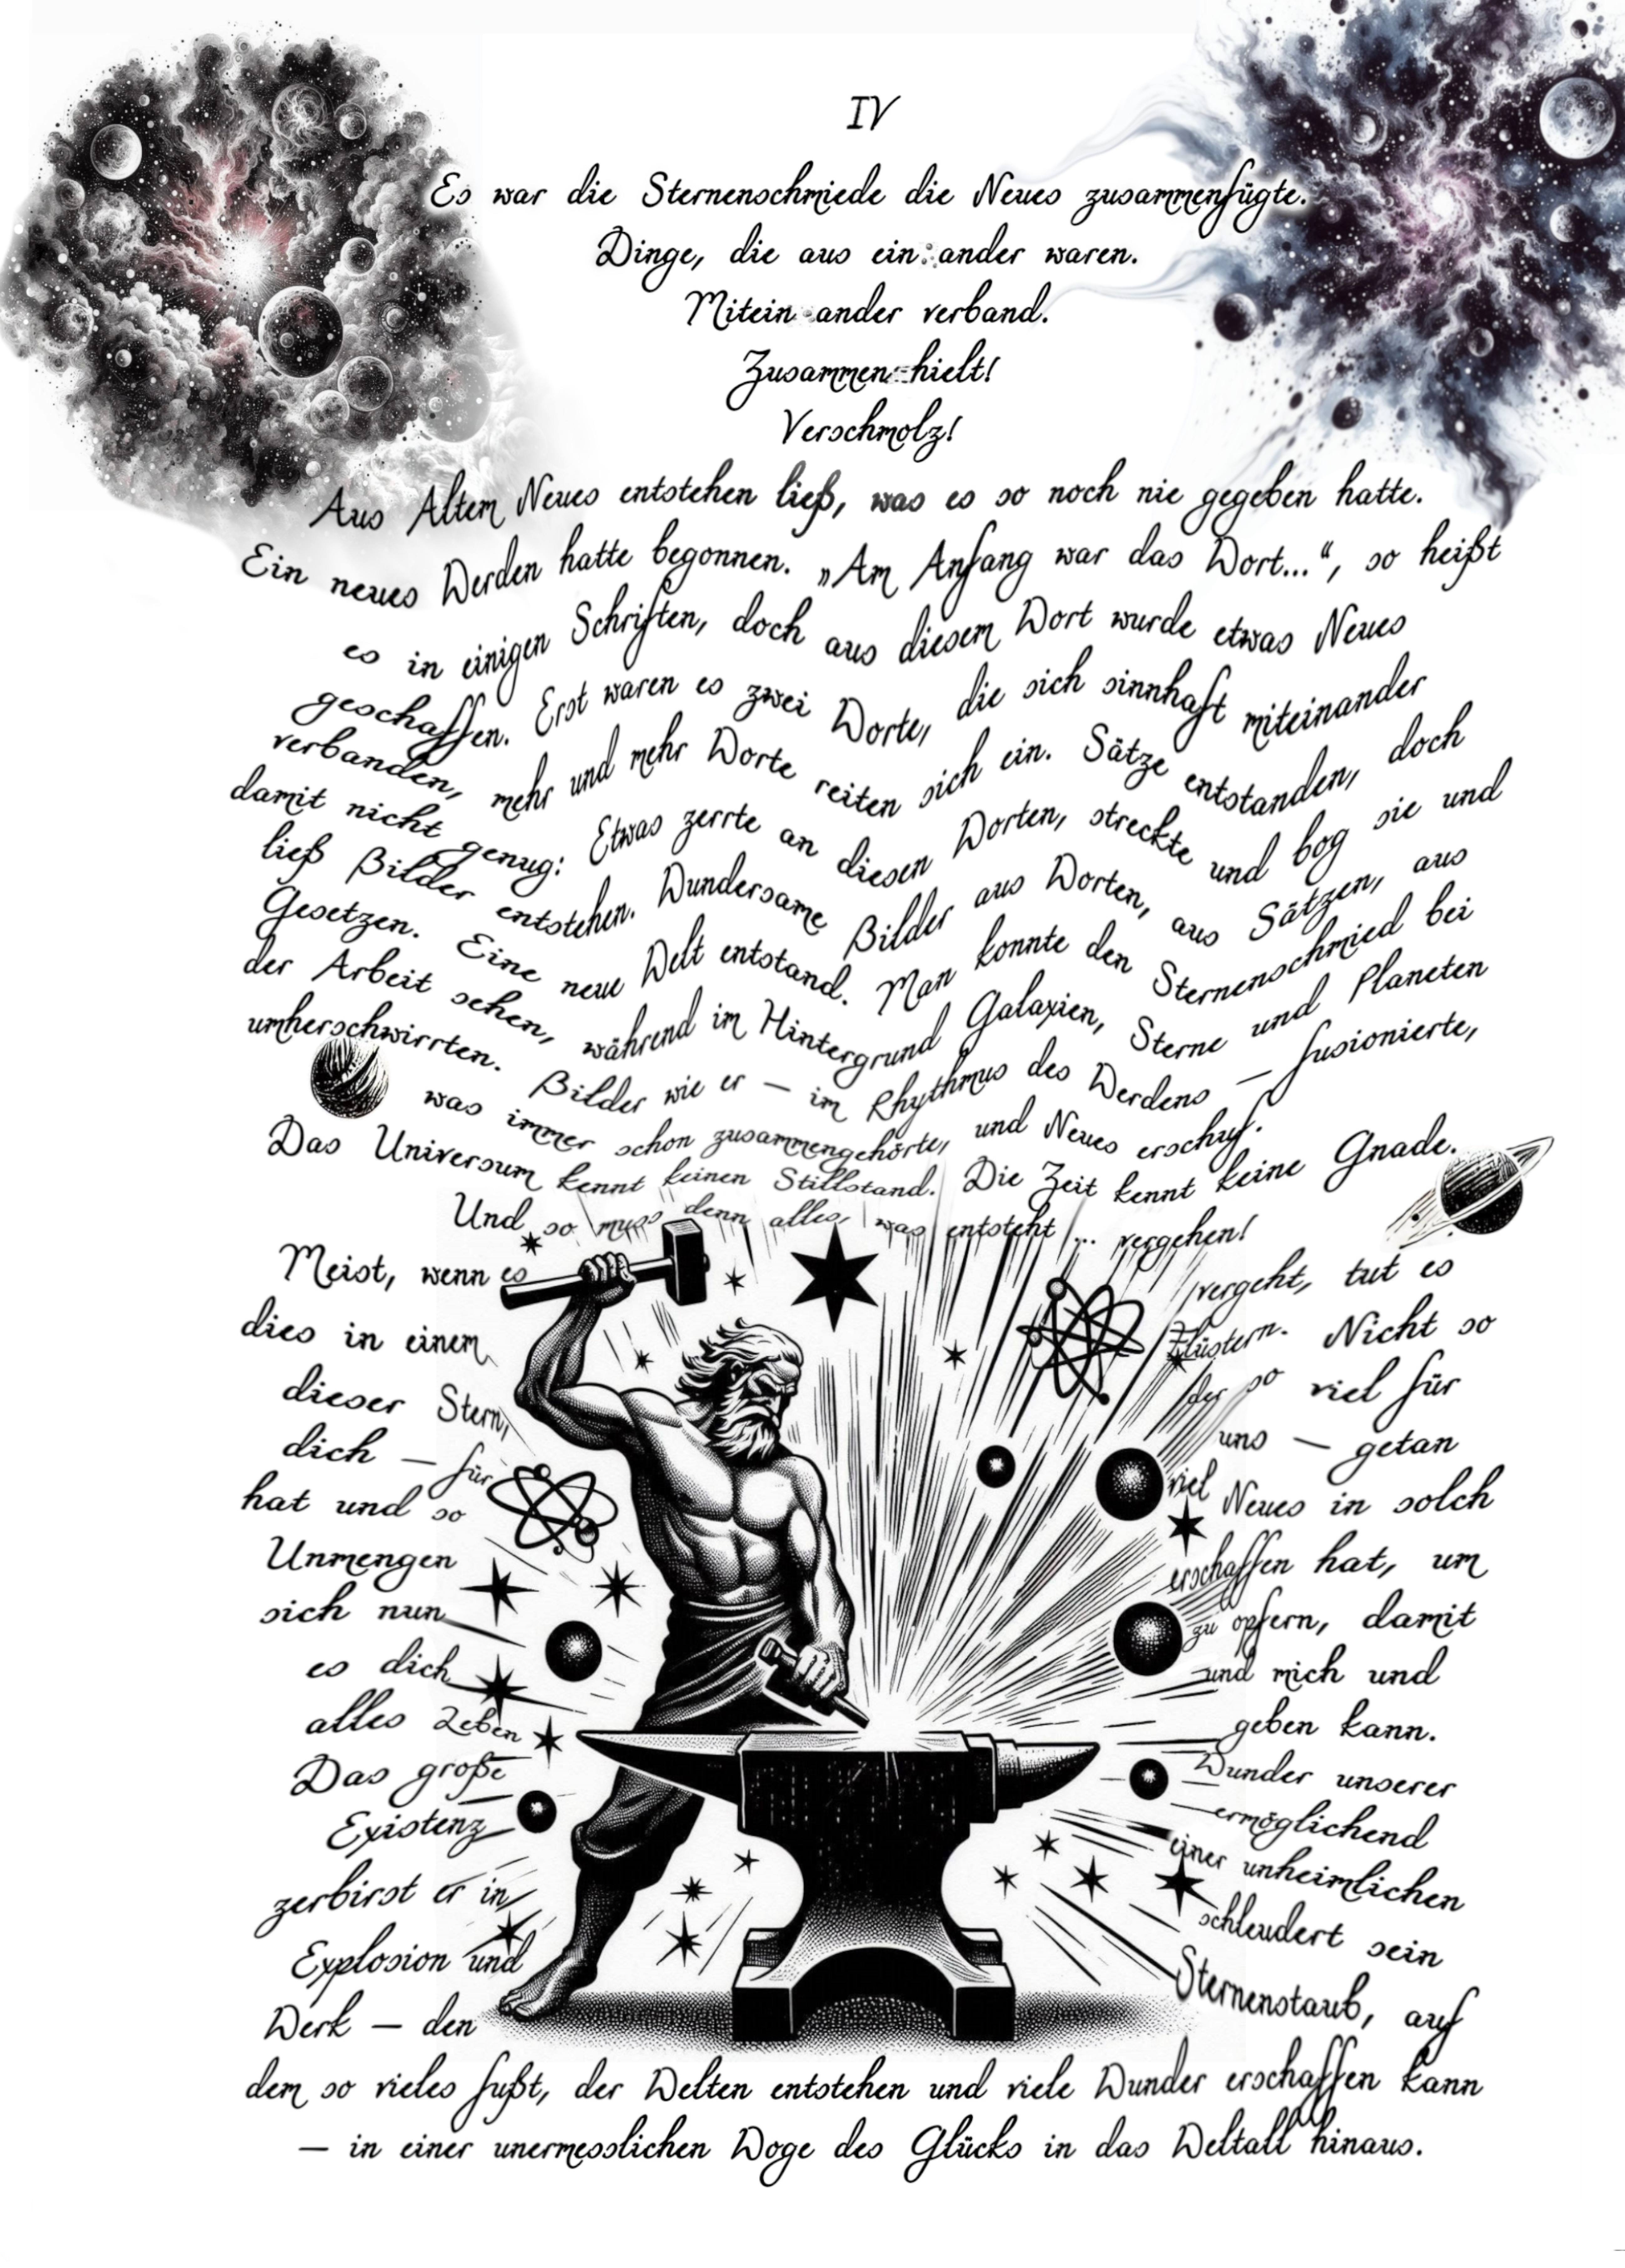 IV
Es war die Sternenschmiede die Neues zusammenfügte.
Dinge, die aus ein:ander waren.
Mitein ander verband.
Zusammen hielt!
Verschmolz!
Aus Altem Neues entstehen ließ, was es so noch nie gegeben hatte.
Ein neues Werden hatte begonnen. „Am Anfang war das Wort...“, so heißt
es in einigen Schriften, doch aus diesem Wort wurde etwas Neues
geschaffen. Erst waren es zwei Worte, die sich sinnhaft miteinander
verbanden, mehr und mehr Worte reiten sich ein. Sätze entstanden, doch
damit nicht genug: Etwas zerrte an diesen Worten, streckte und bog sie und
ließ Bilder entstehen. Wundersame Bilder aus Worten, aus Sätzen, aus
Gesetzen. Eine neue Welt entstand. Man konnte den Sternenschmied bei
der Arbeit sehen, während im Hintergrund Galaxien, Sterne und Planeten
umherschwirrten. Bilder wie er – im Rhythmus des Werdens – fusionierte,
was immer schon zusammengehörte, und Neues erschuf.
Das Universum kennt keinen Stillstand. Die Zeit kennt keine Gnade.
Und so muss denn alles, was entsteht ... vergehen!
Meist, wenn es vergeht, tut es
dies in einem Flüstern. Nicht so
dieser Stern, der so viel für
dich – für uns – getan
hat und so viel Neues in solch
Unmengen erschaffen hat, um
sich nun zu opfern, damit
es dich und mich und
alles Leben geben kann.
Das große Wunder unserer
Existenz ermöglichend
zerbirst er in einer unheimlichen
Explosion und schleudert sein
Werk – den Sternenstaub, auf
dem so vieles fußt, der Welten entstehen und viele Wunder erschaffen kann
– in einer unermesslichen Woge des Glücks in das Weltall hinaus.